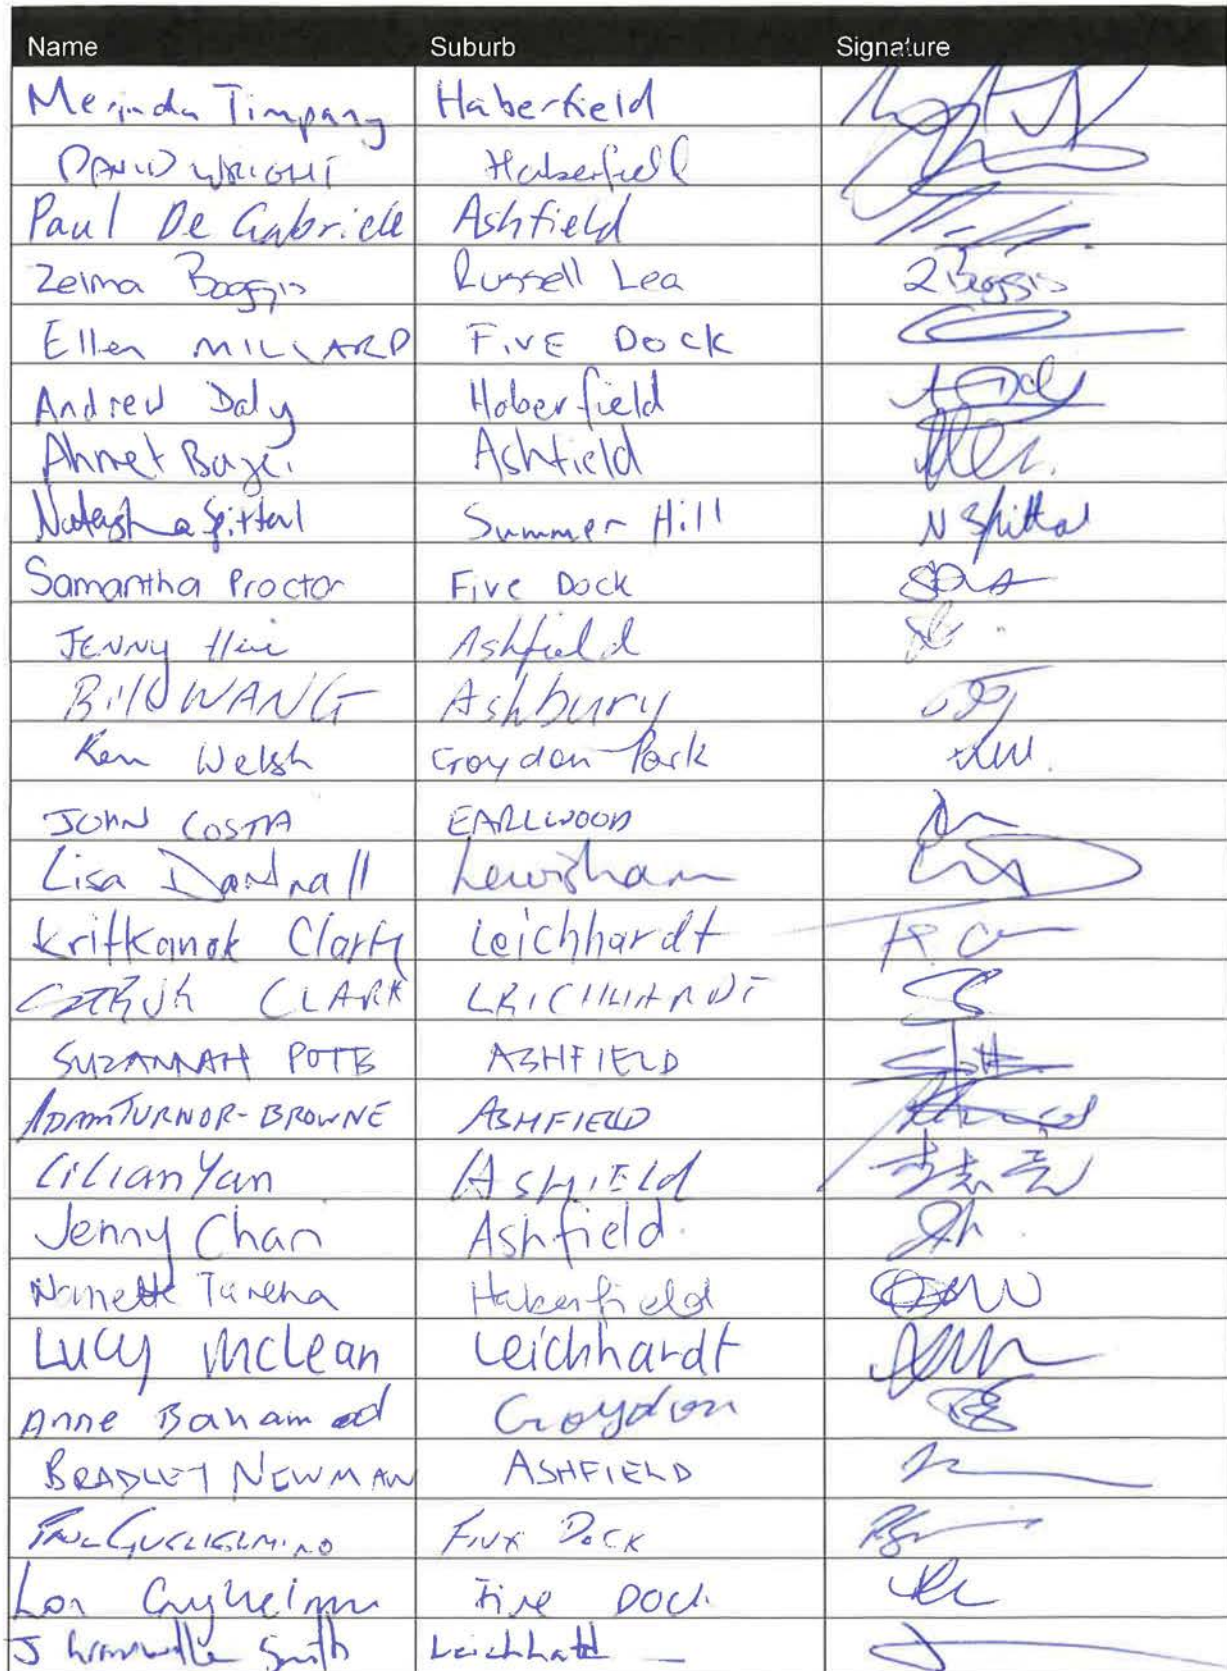 Name Suburb Signature
Merinda Timpany Haberfield
DAVID WRIGHT Haberfield
Paul De Gabriele Ashfield
Zelma Boggis Russell Lea Z Boggis
Ellen MILLARD FIVE DOCK
Andrew Daly Haberfield
Ahmet Ashfield
Natasha Spittal Summer Hill N Spittal
Samantha Proctor Five Dock
JENNY Ashfield
Bill WANG Ashbury
Ken Welsh Croydon Park
JOHN COSTA EARLWOOD
Lisa Dartnall Lewisham
Kritkanok Clark Leichhardt
CLARK LEICHHARDT
SUZANNAH POTTS ASHFIELD
ADAM TURNOR-BROWNE ASHFIELD
Lilian Yan ASHIELD
Jenny Chan Ashfield
Nanette Haberfield
Lucy McLean Leichhardt
Anne Croydon
BRADLEY NEWMAN ASHFIELD
PAUL GUGLIELMINO FIVE DOCK
Five Dock
J Smith Leichhardt